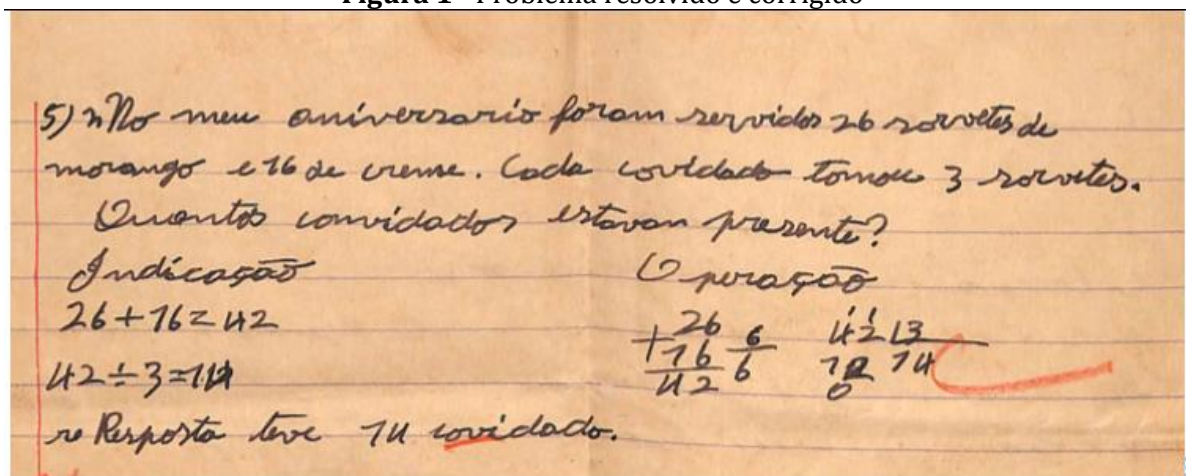 Figura 1 - Problema resolvido e corrigido
5) No meu aniversario foram servidos 26 sorvetes de
morango e 16 de creme. Cada covidado tomou 3 sorvetes.
Quantos convidados estavan presente?
Indicação Operação
26+16=42
42÷3=14
26 6 42 3
+16 6 12 14
42 0
Resposta teve 14 covidado.